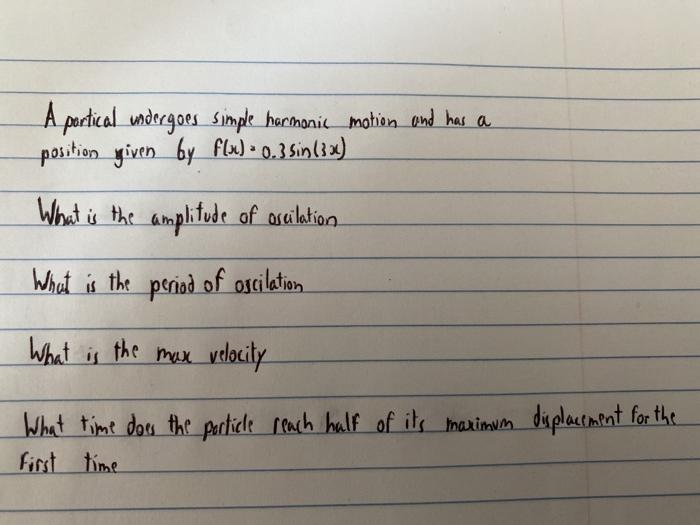 A partical undergoes simple harmonic motion and has a
position given by f(x) = 0.3 sin(3x)
What is the amplitude of oscilation
What is the period of oscilation
What is the max velocity
What time does the particle reach half of its maximum displacement for the
first time